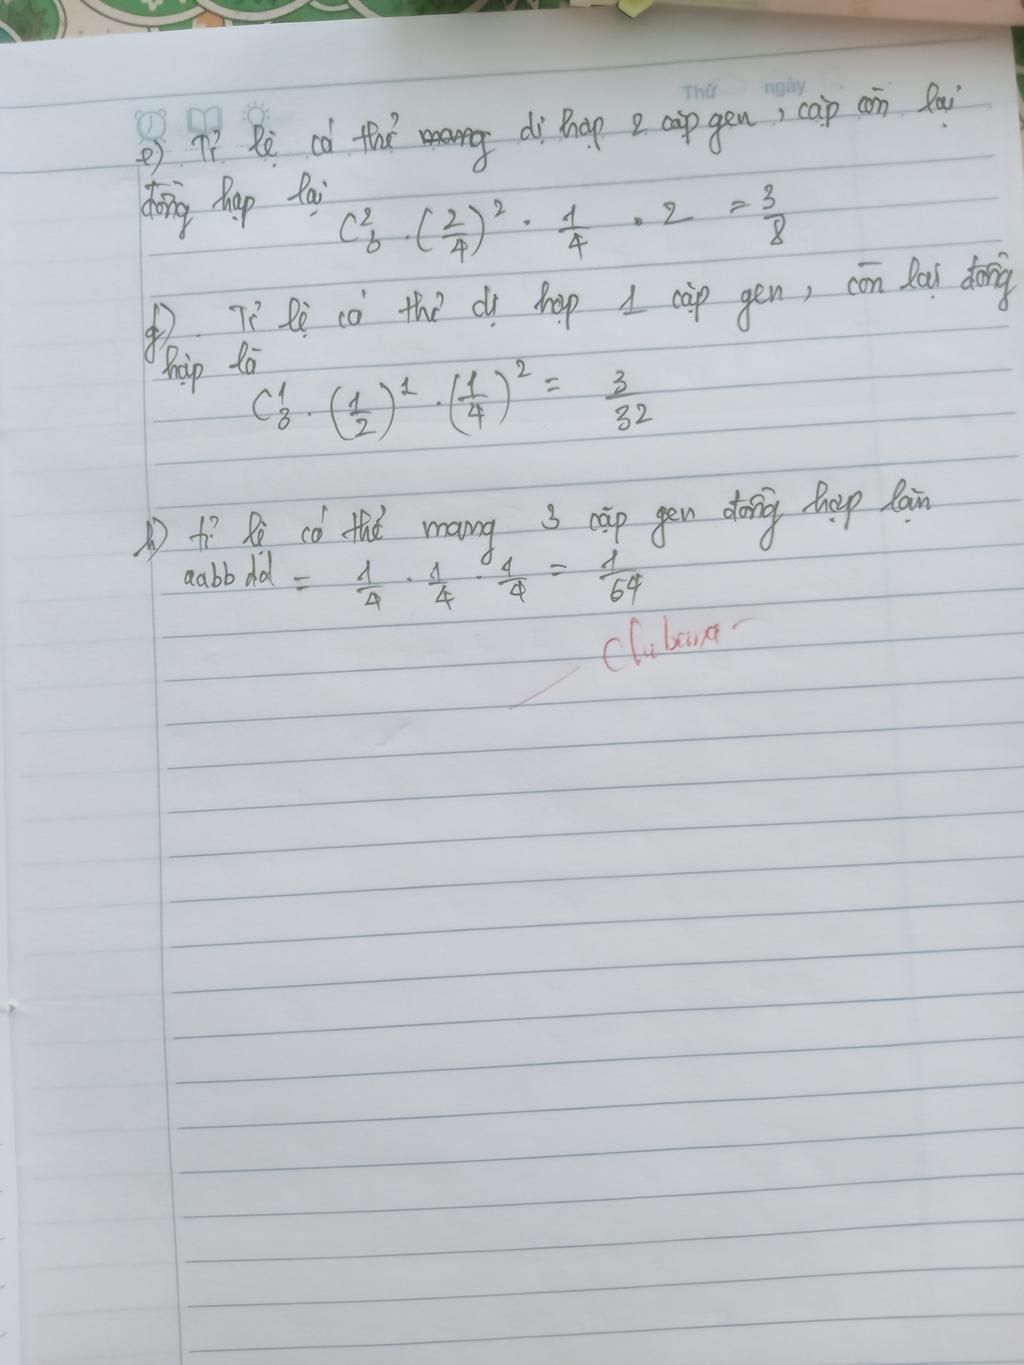 Thứ ngày
e) Tỉ lệ cá thể mang dị hợp 2 cặp gen, cặp còn lại
đồng hợp lại
C²₃ . (2/4)² . 1/4 . 2 = 3/8
g). Tỉ lệ cá thể dị hợp 1 cặp gen, còn lại đồng
hợp là
C¹₃ . (1/2)¹ . (1/4)² = 3/32
h) tỉ lệ cá thể mang 3 cặp gen đồng hợp lặn
aabbdd = 1/4 . 1/4 . 1/4 = 1/64